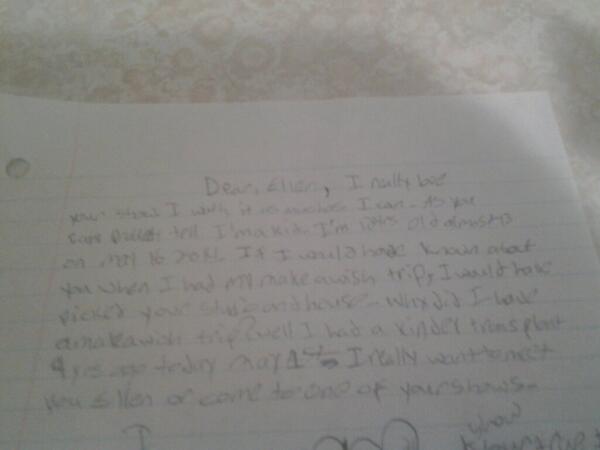 Dear, Ellen, I really love
your show I watch it as much as I can. As you
can tell I'm a kid. I'm 12yrs old almost 13
on May 16 2014. If I would have known about
you when I had my make a wish trip, I would have
picked your studio and house. Why did I have
a make a wish trip? well I had a kinder transplant
9 yrs ago today may 1st. I really want to meet
you Ellen or come to one of your shows.
I
your